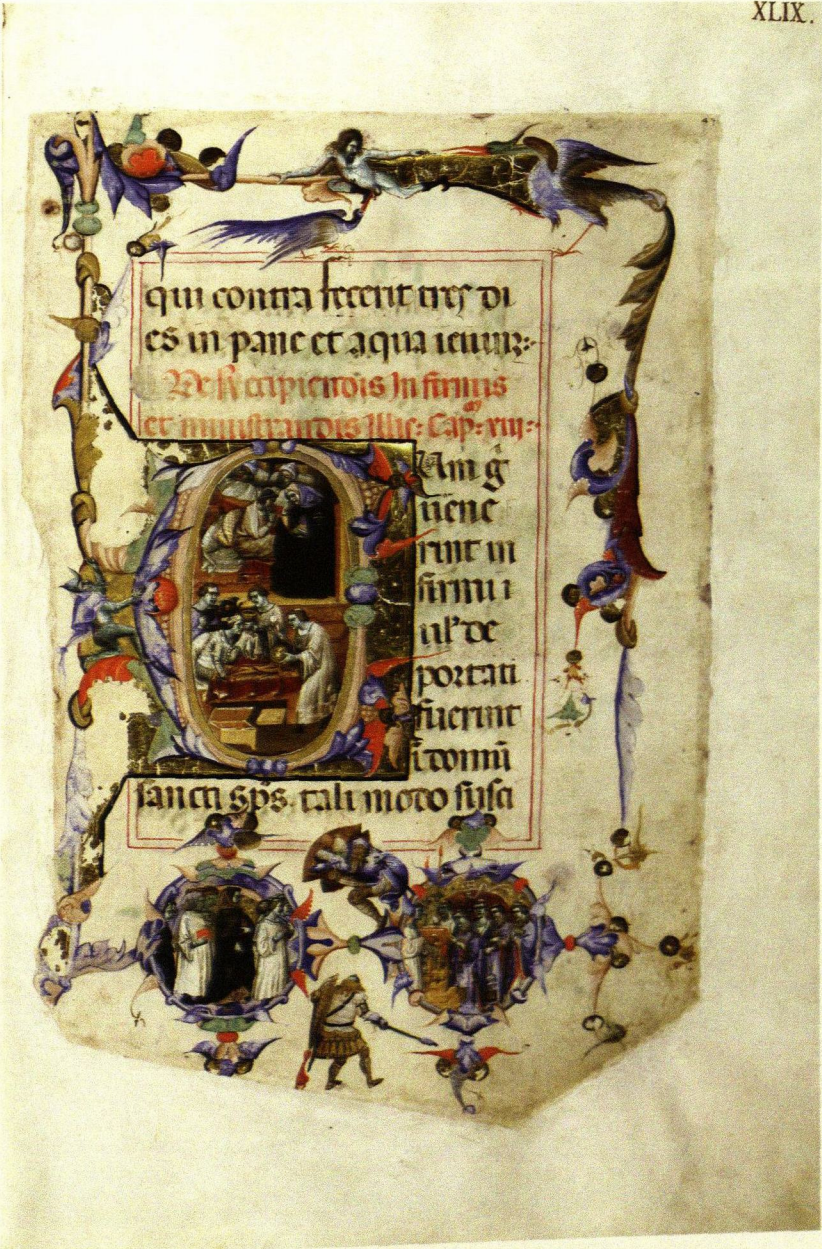 XLIX.
qui contra fecerit tres di
es in pane et aqua ieiun&:
De Recipiendis Infirmis
et ministrandis Illis: Cap̃: xiii:
Cum q̄
uene
rint in
firmi i
ul' de
portati
fuerint
ī domū
sancti sp̄s. tali modo susci